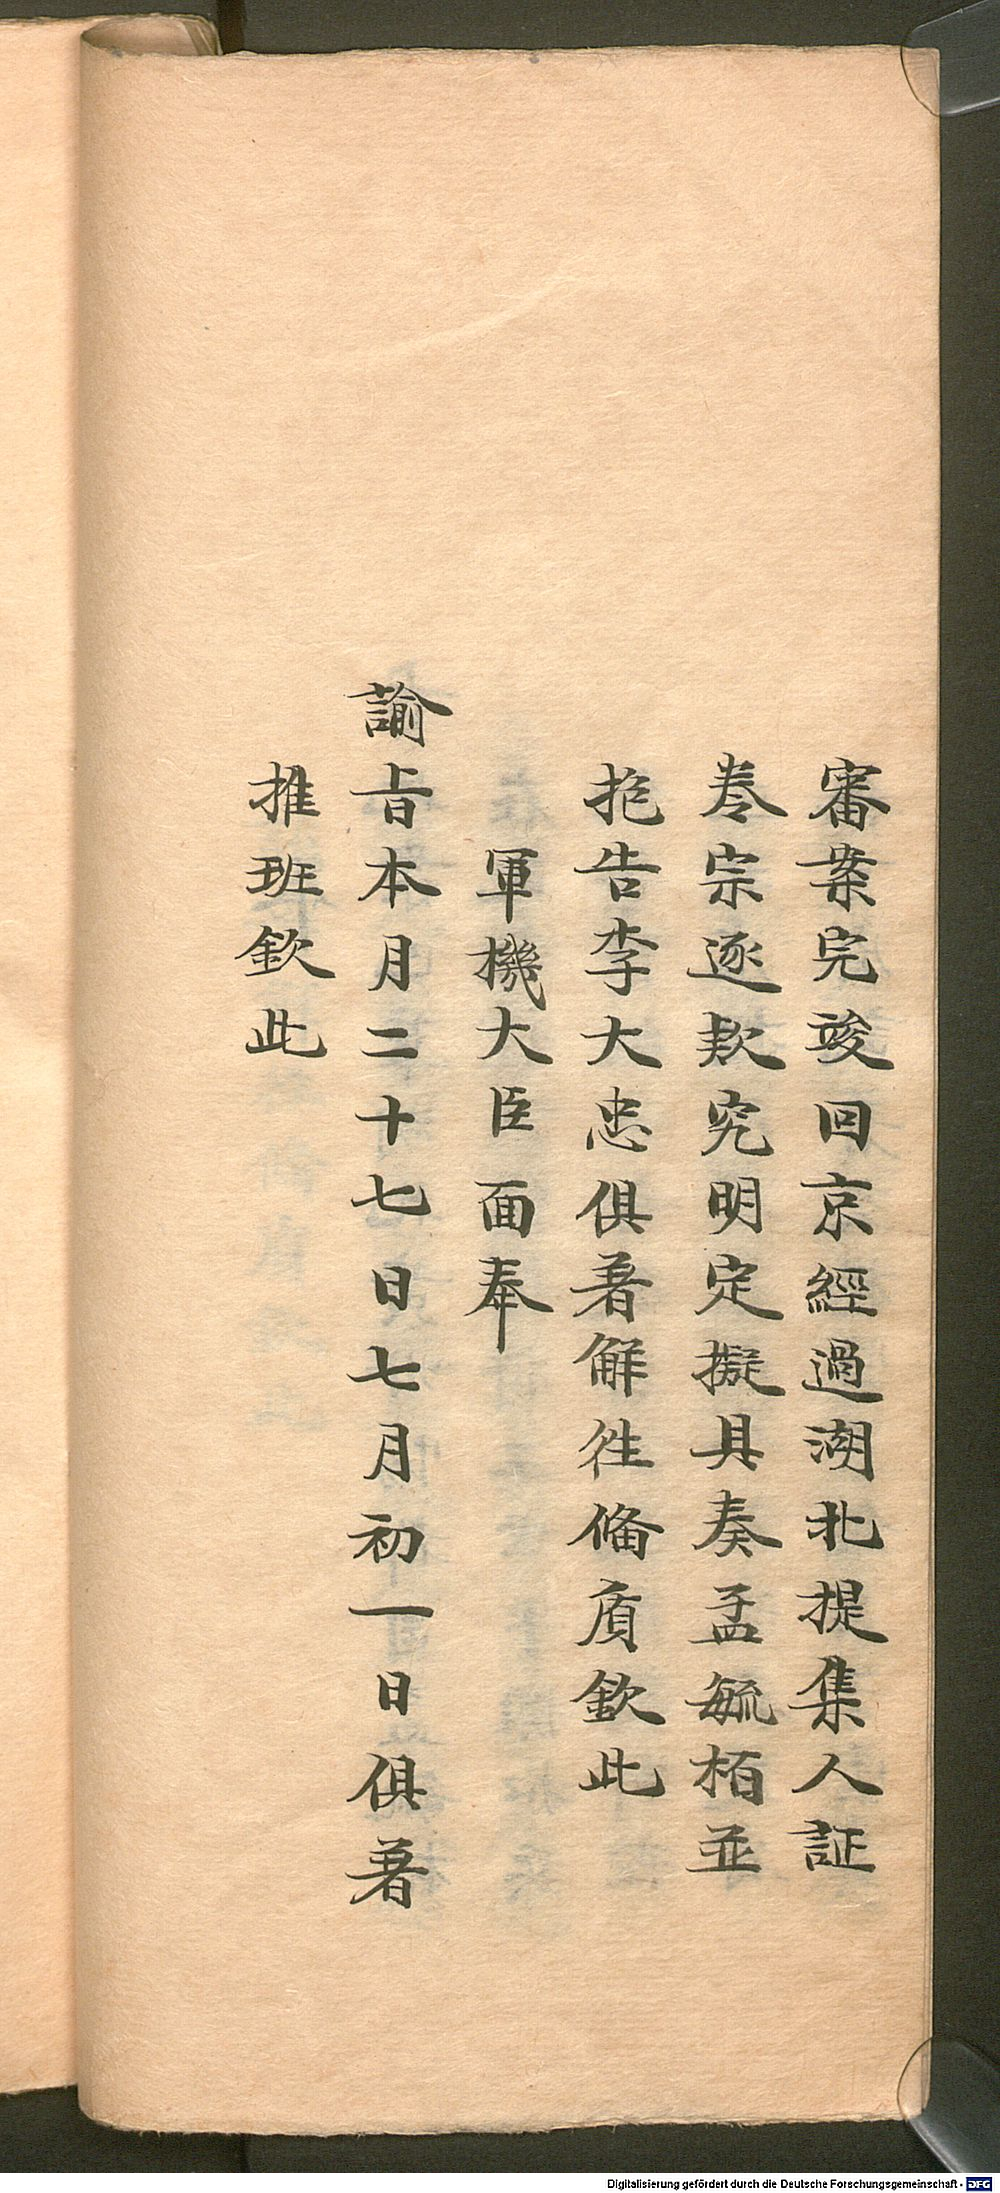 審案完竣回京經過湖北提集人証
卷宗逐款究明定擬具奏孟毓栢並
抱告李大忠俱著解徃備質欽此
軍機大臣面奉
諭旨本月二十七日七月初一日俱著
推班欽此
Digitalisierung gefördert durch die Deutsche Forschungsgemeinschaft - DFG